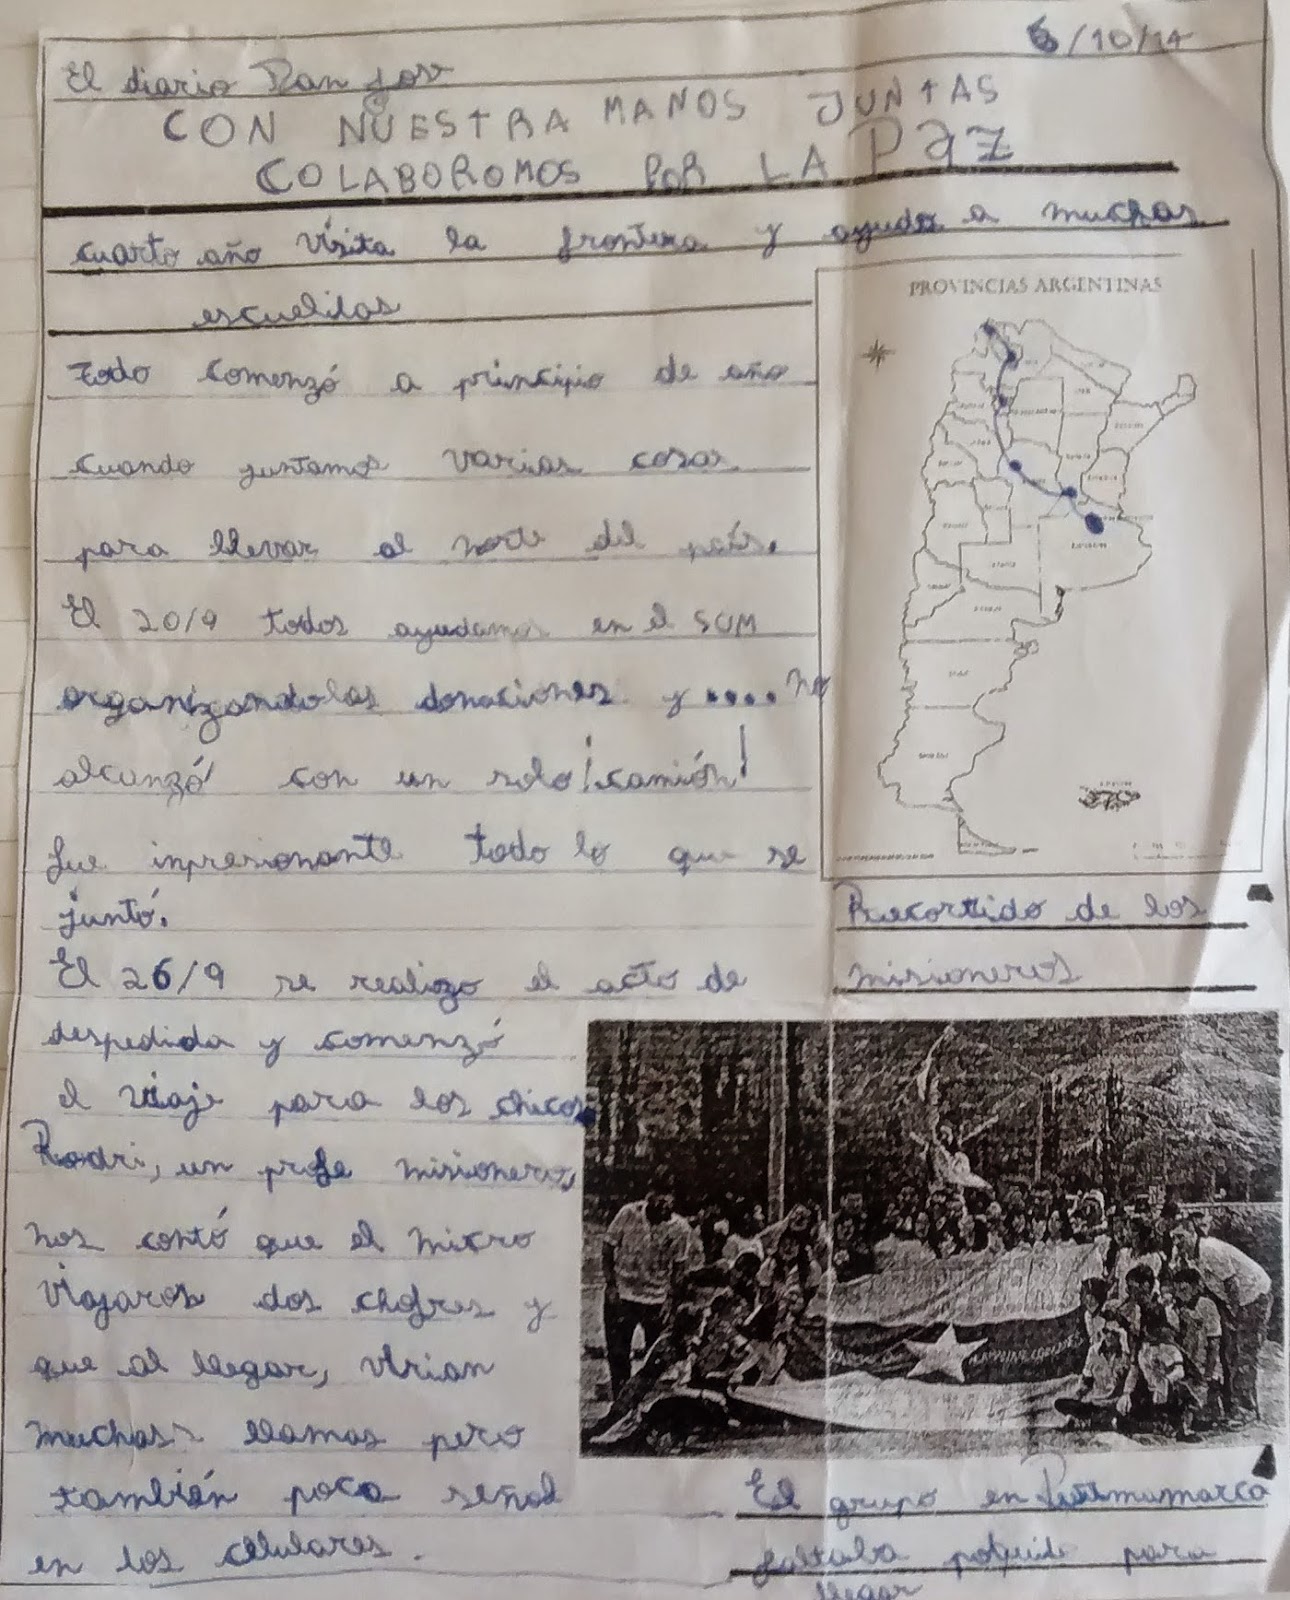 6/10/14
El diario San José
CON NUESTRA MANOS JUNTAS
COLABOROMOS POR LA PAZ
cuarto año visita la frontera y ayuda a muchas
escuelitas
todo comenzó a principio de año
cuando juntamos varias cosas
para llevar al norte del país.
El 20/9 todos ayudamos en el SUM
organizando las donaciones y .... no
alcanzó con un solo ¡camión!
fue inpresionante todo lo que se
juntó.
El 26/9 se realizo el acto de
despedida y comenzó
el viaje para los chicos
Rodri, un profe misionero,
nos contó que el micro
viajaros dos chofres y
que al llegar, virian
muchas llamas pero
también poca señal
en los celulares.
PROVINCIAS ARGENTINAS
Recorrido de los
misioneros
El grupo en Purmamarca
faltaba poquito para
llegar